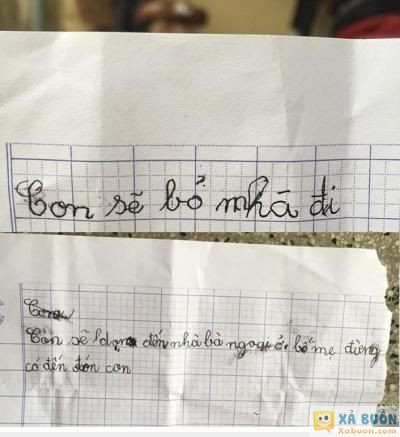 Con sẽ bỏ nhà đi
Con
Còn sẽ dọn đến nhà bà ngoại ở. bố mẹ đừng
có đến đón con
XẢ BUỒN
Xabuon.com